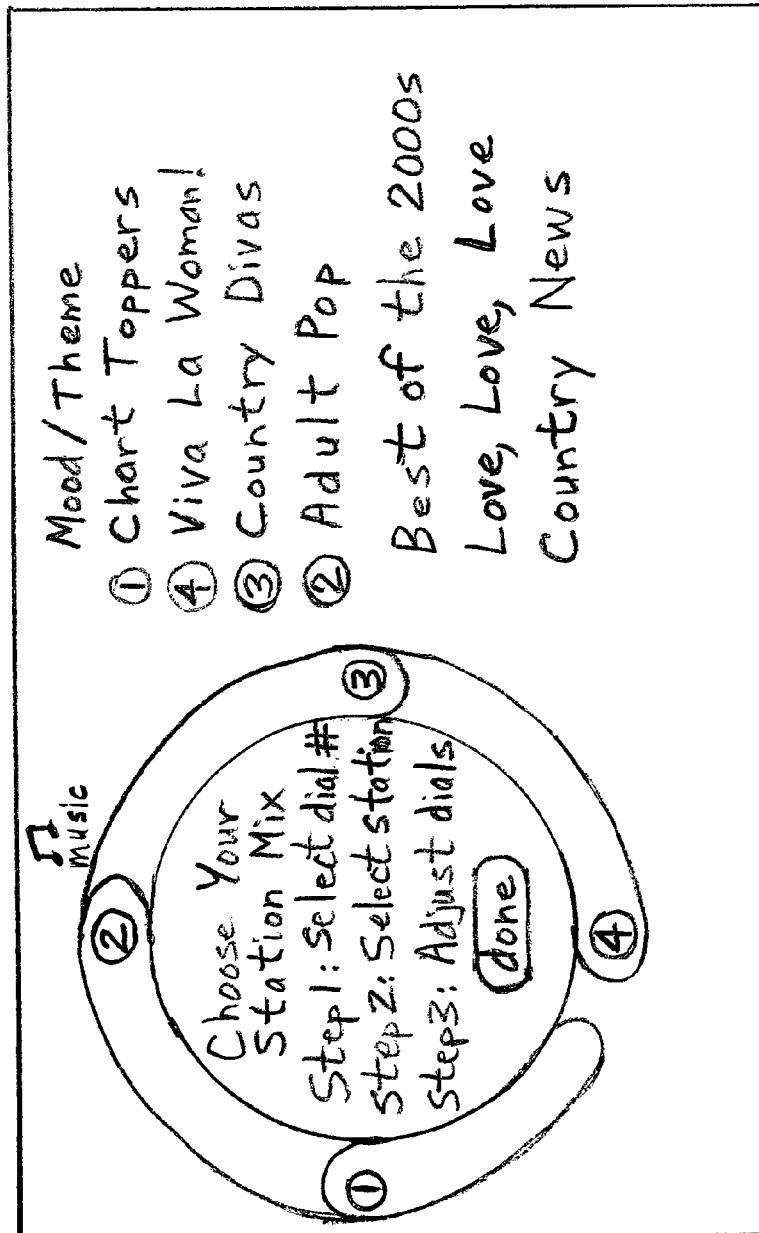 ♫
music
②
Choose Your
Station Mix
Step 1: Select dial #
Step 2: Select station
Step 3: Adjust dials
done
①
③
④
Mood/Theme
① Chart Toppers
④ Viva La Woman!
③ Country Divas
② Adult Pop
Best of the 2000s
Love, Love, Love
Country News